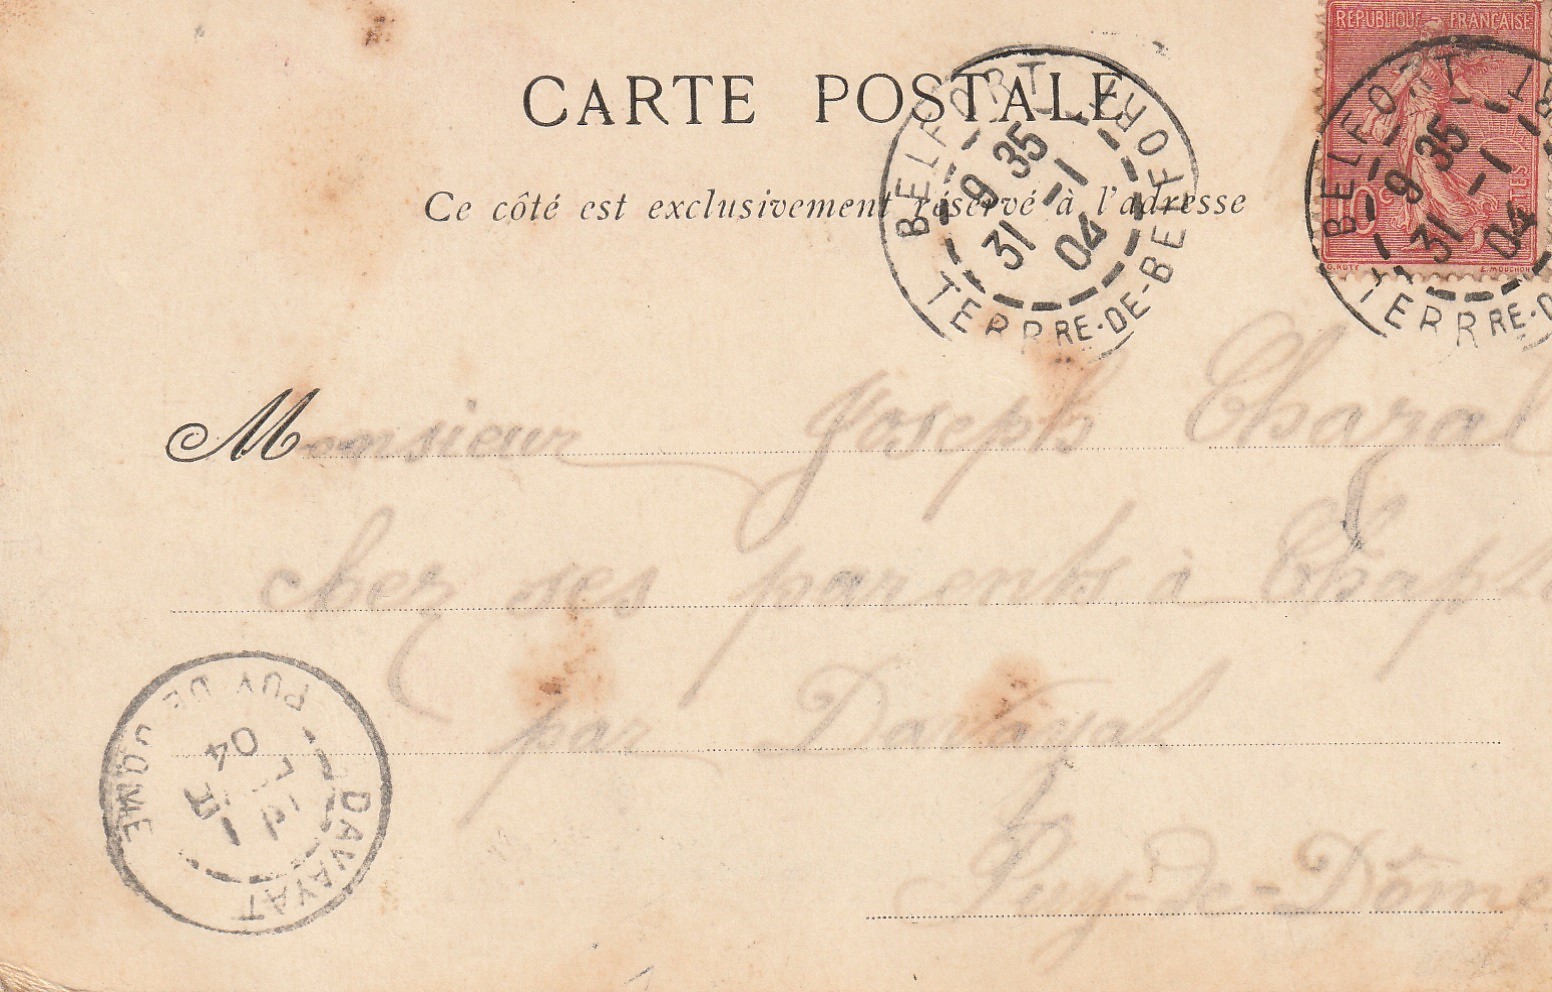 CARTE POSTALE
Ce côté est exclusivement réservé à l'adresse
RÉPUBLIQUE FRANÇAISE
O. ROTY E. MOUCHON
BELFORT TERRE-DE-BELFORT
9 35
31 -1
04
BELFORT
TERRE-D
9 35
31 -1
04
Monsieur Joseph Chazal
chez ses parents à
par Davayat
Puy-de-Dôme
DAVAYAT
PUY DE DOME
1
II
04